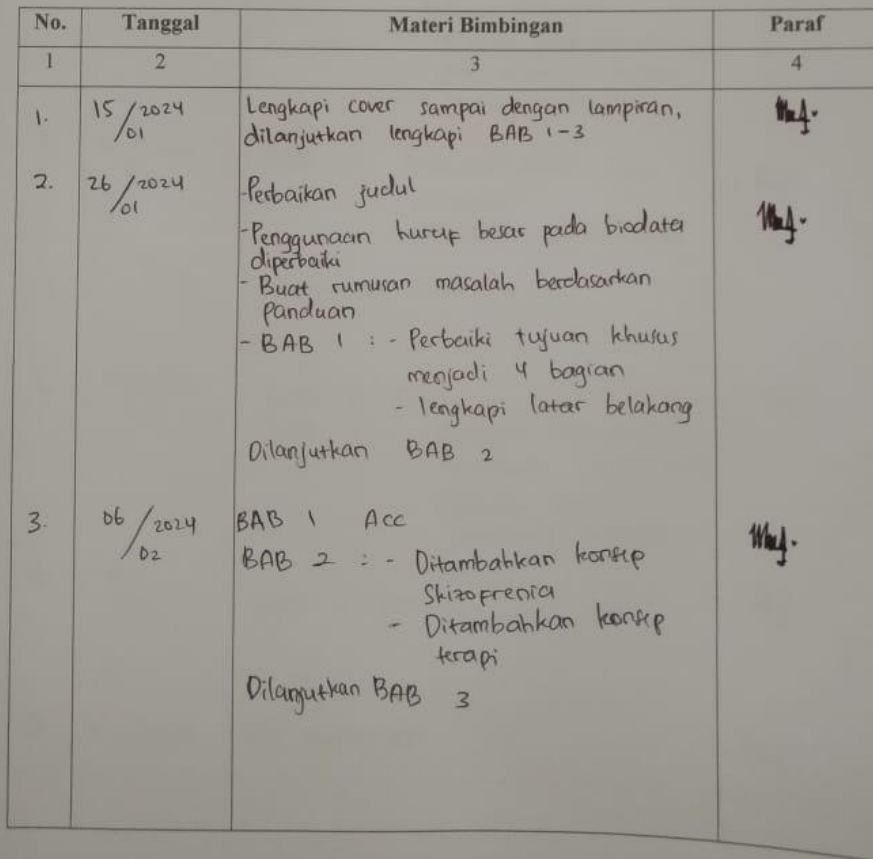 No. Tanggal Materi Bimbingan Paraf
1 2 3 4
1. 15/01/2024 Lengkapi cover sampai dengan lampiran,
dilanjutkan lengkapi BAB 1-3
2. 26/01/2024 -Perbaikan judul
-Penggunaan huruf besar pada biodata
diperbaiki
- Buat rumusan masalah berdasarkan
panduan
- BAB 1 : - Perbaiki tujuan khusus
menjadi 4 bagian
- lengkapi latar belakang
Dilanjutkan BAB 2
3. 06/02/2024 BAB 1 Acc
BAB 2 : - Ditambahkan konsep
Skizofrenia
- Ditambahkan konsep
terapi
Dilanjutkan BAB 3